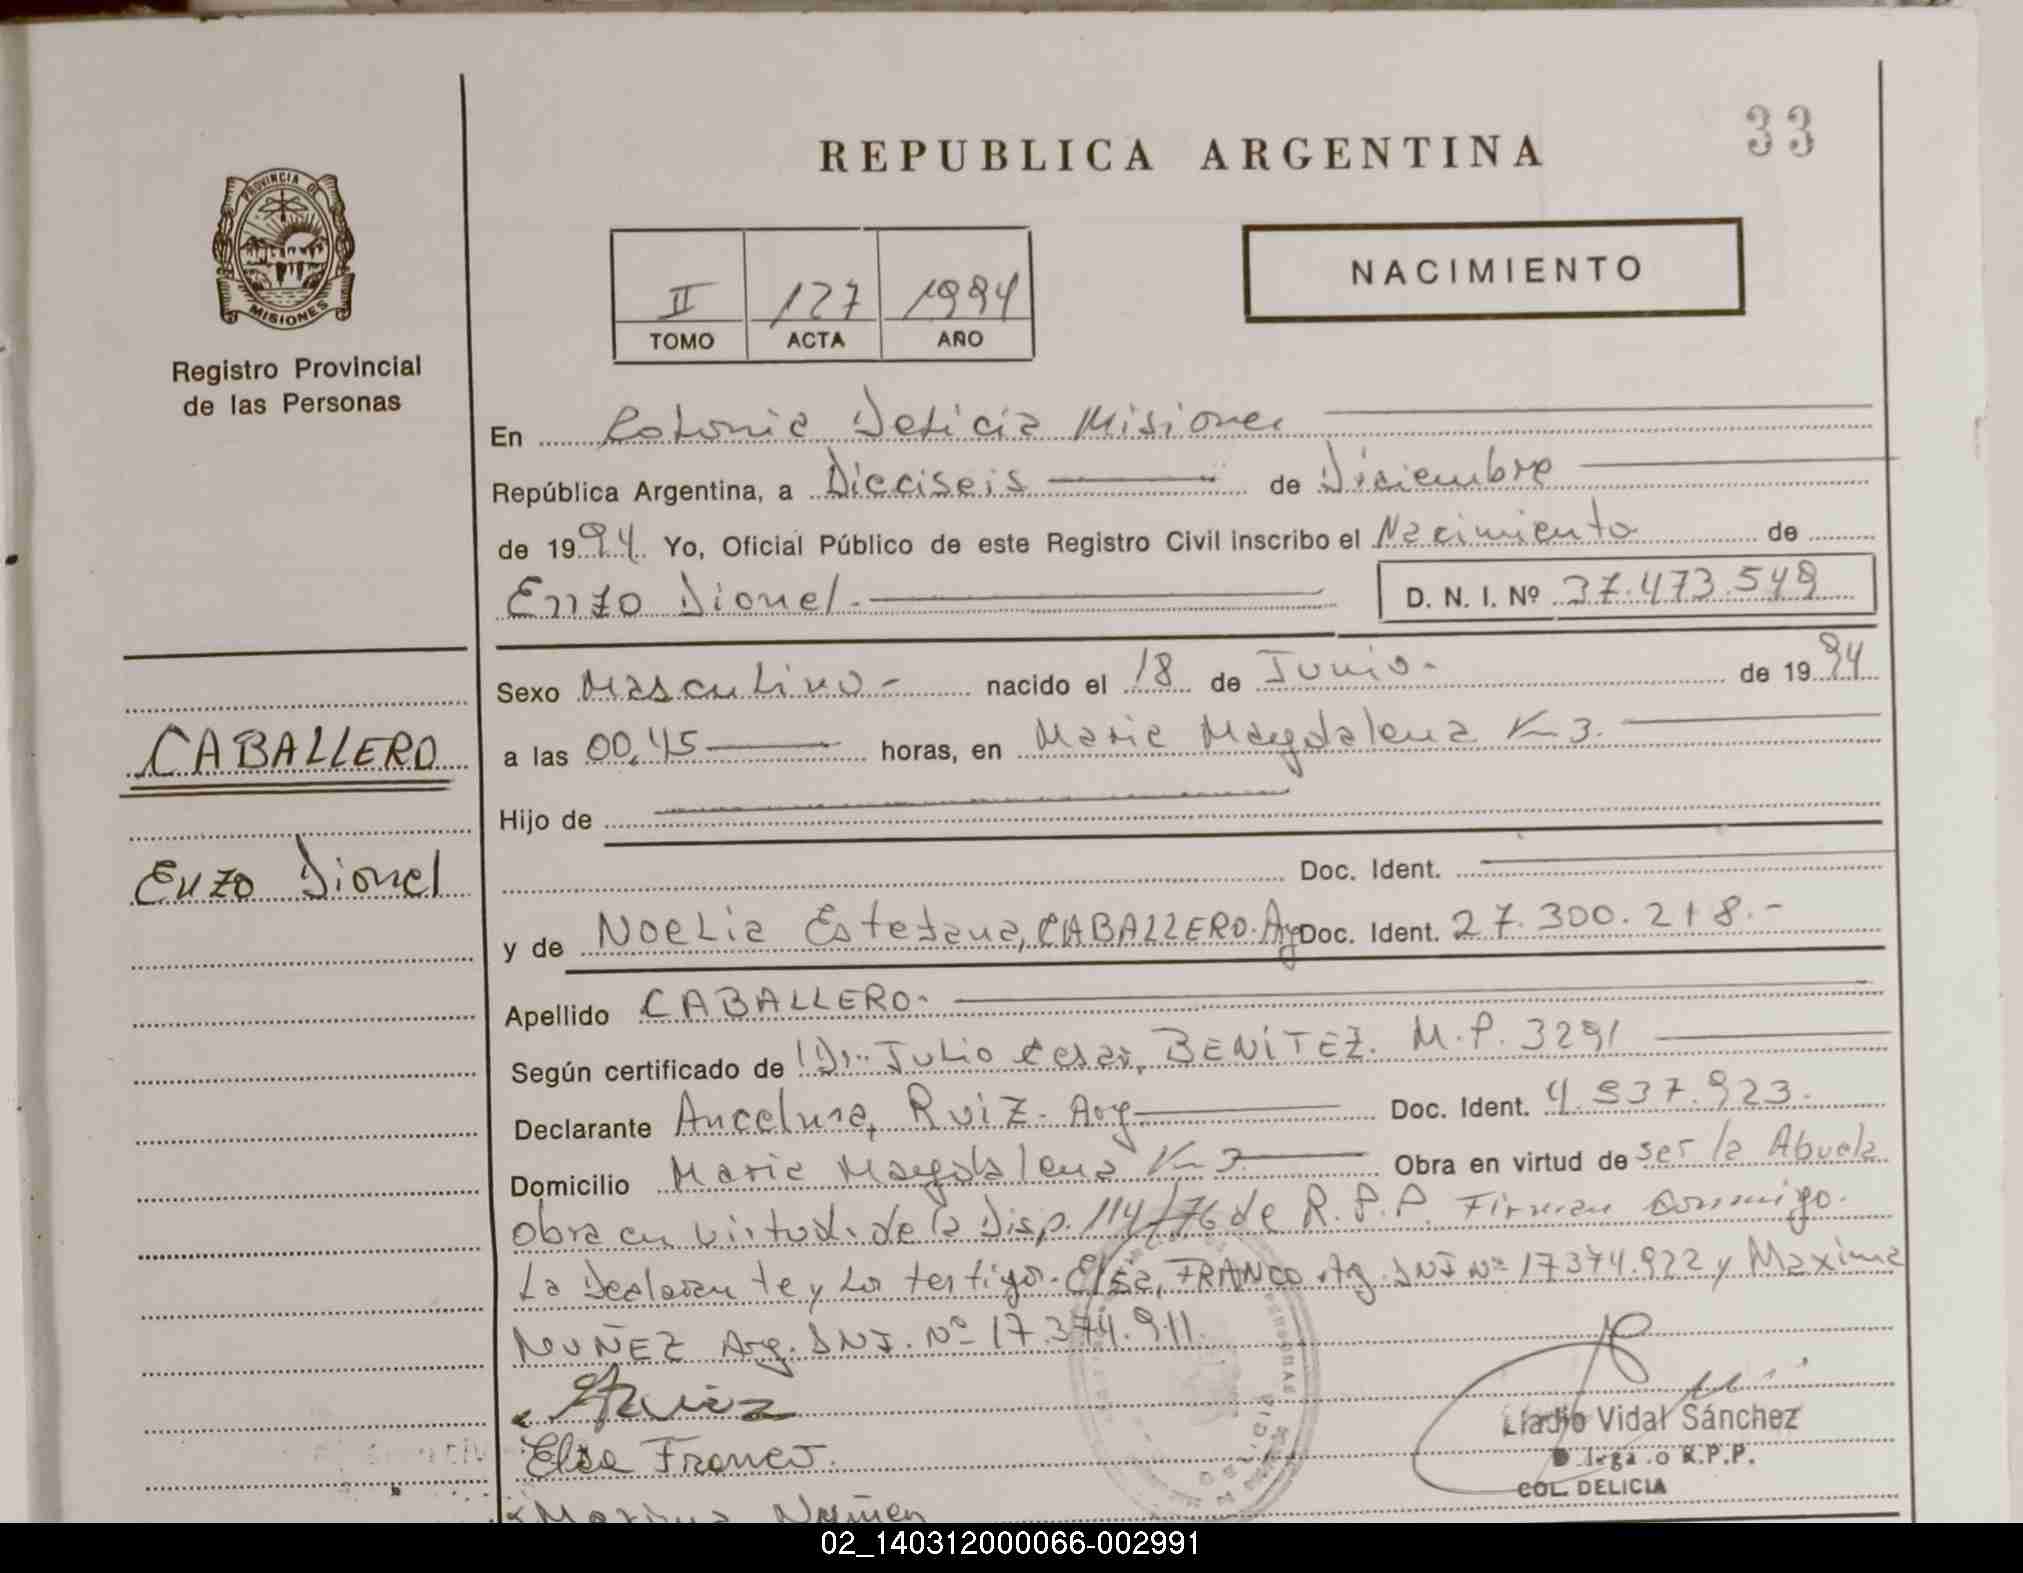 33
REPUBLICA ARGENTINA
PROVINCIA DE
MISIONES
Registro Provincial
de las Personas
NACIMIENTO
II 127 1994
TOMO ACTA AÑO
En Colonia Delicia Misiones
República Argentina, a Dieciseis de Diciembre
de 1994 Yo, Oficial Público de este Registro Civil inscribo el Nacimiento de
Enzo Dionel. D. N. I. Nº 37.473.549
Sexo Masculino - nacido el 18 de Junio - de 1994
CABALLERO
a las 00,45 horas, en Maria Magdalena Km 3.
Hijo de
Enzo Dionel
Doc. Ident.
y de Noelia Estefana, CABALLERO. Arg Doc. Ident. 27.300.218.-
Apellido CABALLERO.
Según certificado de Dr. Julio Cesar, BENITEZ. M.P. 3291
Declarante Ancelma, RUIZ. Arg Doc. Ident. 4.937.923.
Domicilio Maria Magdalena Km 3 Obra en virtud de ser la Abuela
Obra en virtud de la Disp. 114/76 de R.P.P. Firman conmigo.
La Declarante y los testigos. Elsa, FRANCO Arg. DNI Nº 17374.922 y Maxima
NUÑEZ Arg. DNI. Nº 17.374.911.
Elsa Franco.
Lladio Vidal Sánchez
R.P.P.
COL. DELICIA
02_140312000066-002991